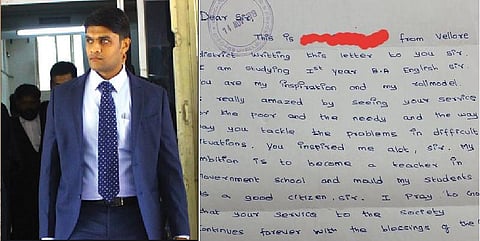 Dear Sir,
This is from Vellore
district writting this letter to you sir.
I am studying Ist year B.A English sir.
You are my inspiration and my rollmodel.
really amazed by seeing your service
for the poor and the needy and the way
way you tackle the problems in difficult
situations. You inspired me alot, sir. My
ambition is to become a teacher in
Government school and mould my students
as a good citizen, sir. I pray to God
that your service to the society
continues forever with the blessings of the